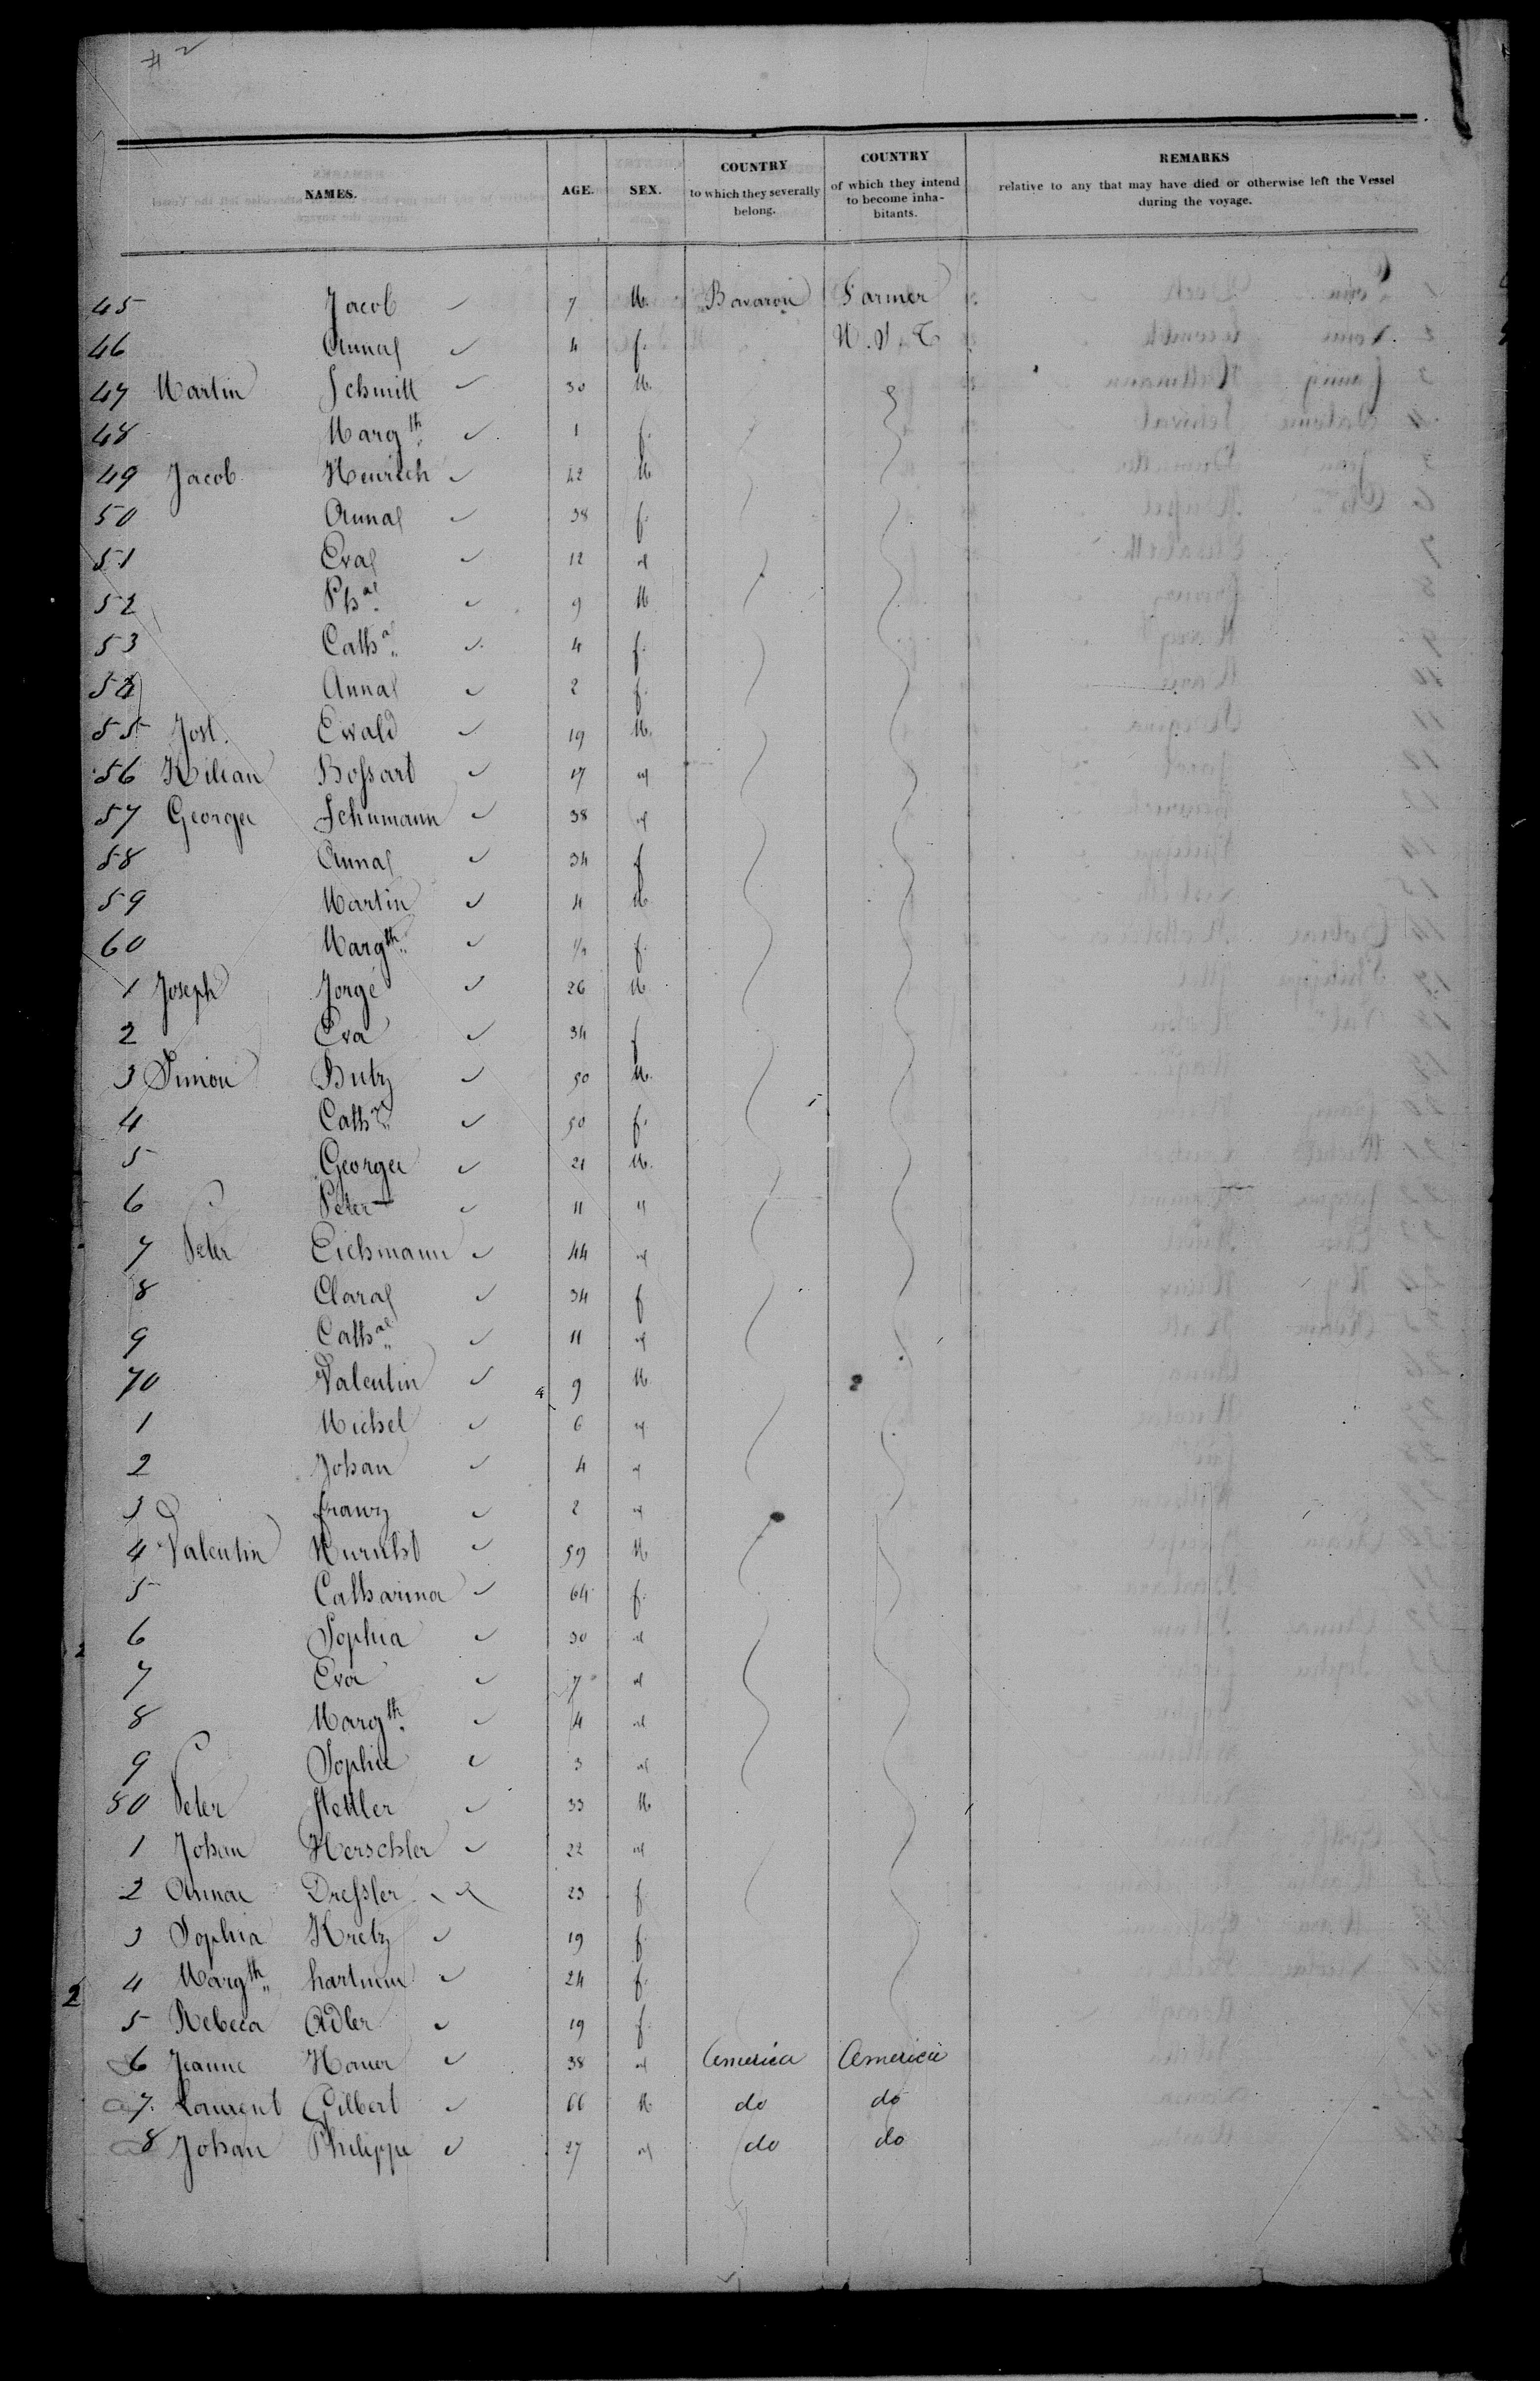 # 2
NAMES. AGE. SEX. COUNTRY to which they severally belong. COUNTRY of which they intend to become inhabitants. REMARKS relative to any that may have died or otherwise left the Vessel during the voyage.
45 Jacob 7 M. Bavaron Farmer
46 Anna 4 f.
47 Martin Schmitt 30 M.
48 Margth. 1 f.
49 Jacob Heinrich 42 M
50 Anna 38 f.
51 Eva 12 "
52 9 M
53 Catha. 4 f.
54 Anna 2 f.
55 Jost. Ewald 19 M.
56 Kilian Bossart 17 "
57 George Schumann 38 "
58 Anna 34 f
59 Martin 4 M
60 Margth. f.
1 Joseph Jorgé 26 M
2 Eva 34 f
3 Simon Butz 50 M.
4 Catha. 50 f.
5 George 21 M.
6 Peter 11 "
7 Peter Eichmann 44 "
8 Clara 34 f
9 Catha. 11 "
70 Valentin 9 M
1 Michel 6 "
2 Johan 4 "
3 franz 2 "
4 Valentin 59 M
5 Catharina 64 f.
6 Sophia 30 "
7 Eva 7 "
8 Margth. 4 "
9 Sophie 3 "
80 Peter Stettler 33 M
1 Johan Herschler 22 "
2 Anna Dressler 23 f
3 Sophia Kretz 19 f.
4 Margth. 24 f.
5 Rebeca Adler 19 f.
6 Jeanne 38 " America America
7. Laurent Gilbert 66 M do do
8 Johan Philippe 27 " do do